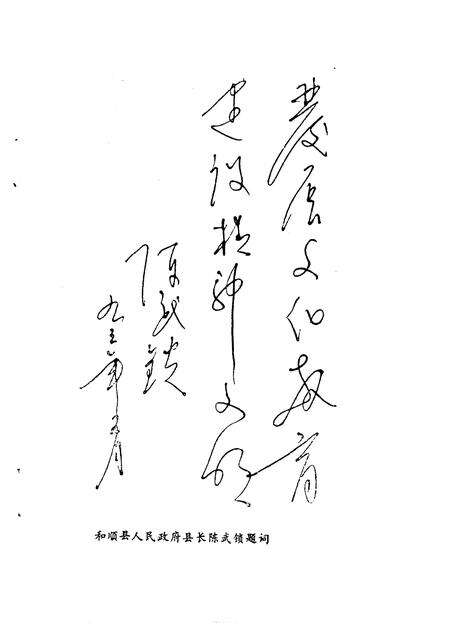 发展文化教育
建设精神文明
陈武锁
九三年五月
和顺县人民政府县长陈武锁题词